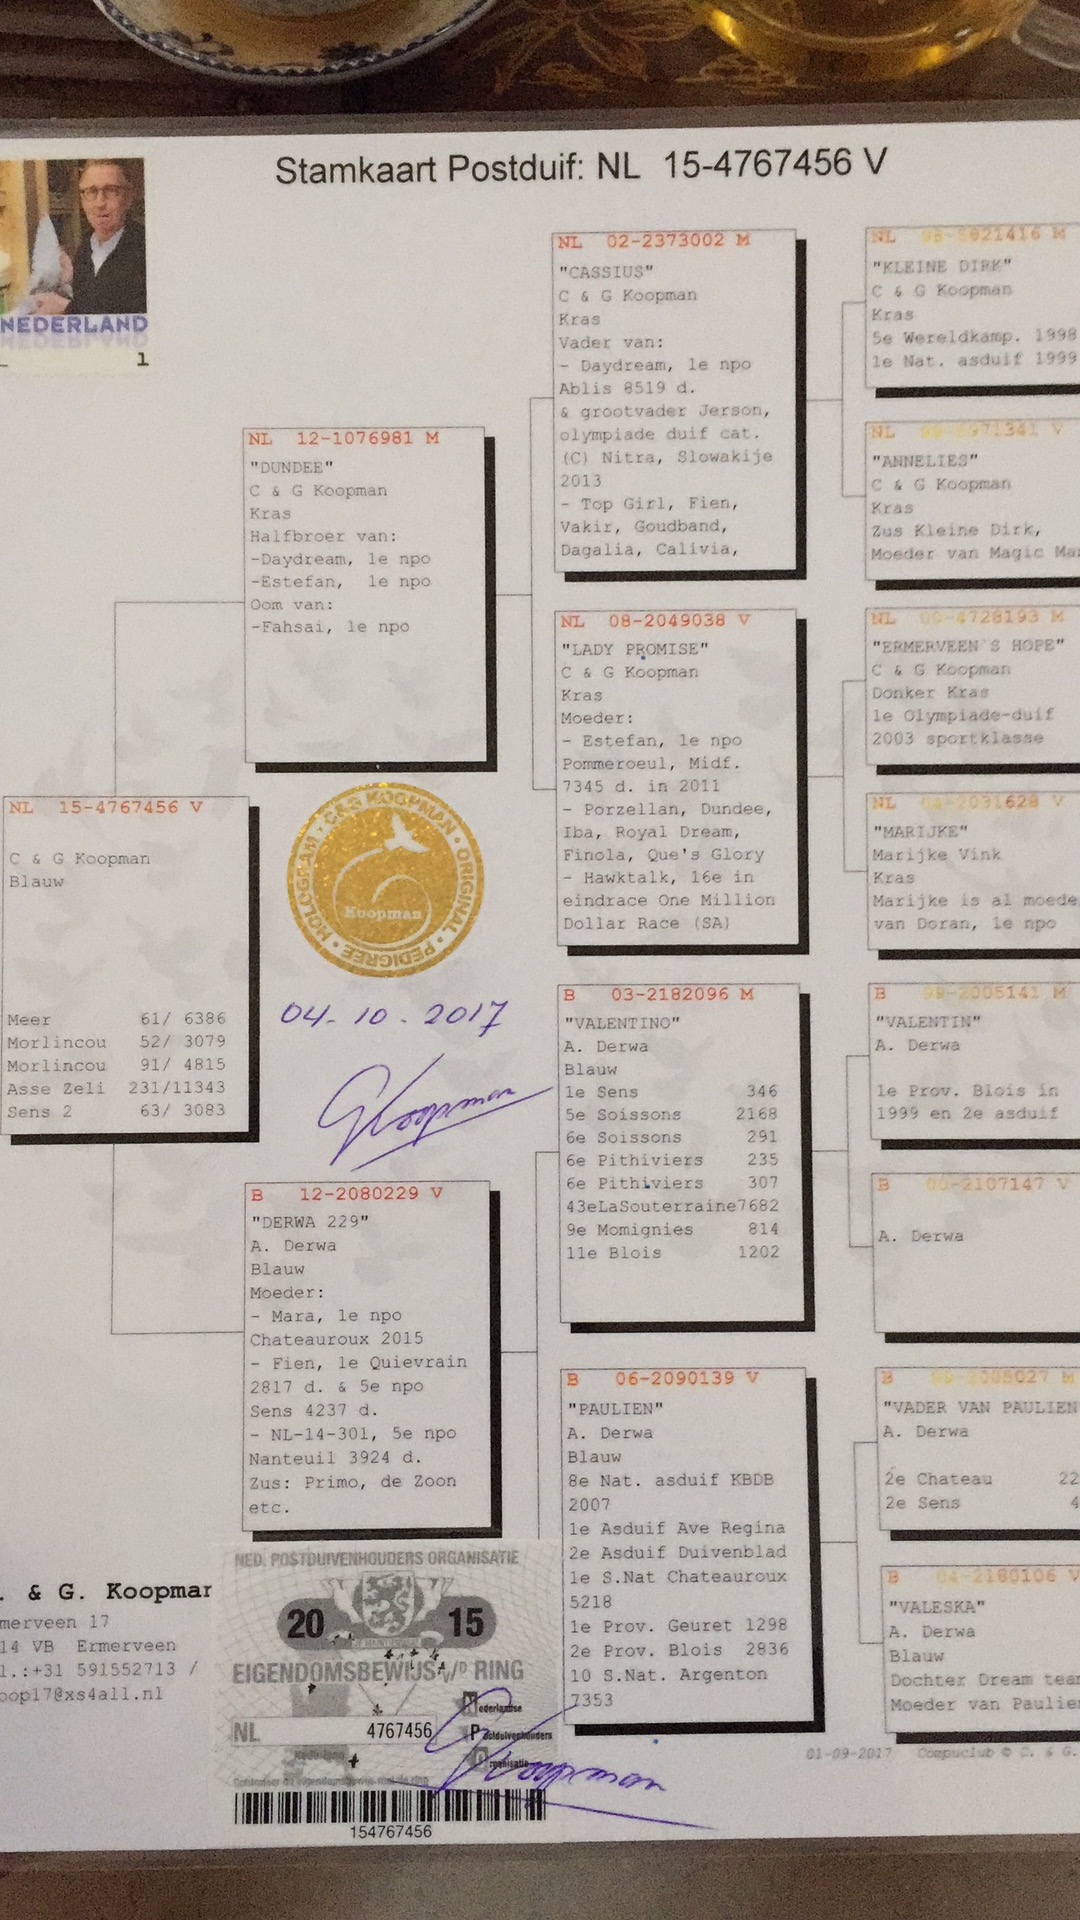 Stamkaart Postduif: NL 15-4767456 V
NEDERLAND
1
NL 15-4767456 V
C & G Koopman
Blauw
Meer 61/ 6386
Morlincou 52/ 3079
Morlincou 91/ 4815
Asse Zeli 231/11343
Sens 2 63/ 3083
NL 12-1076981 M
"DUNDEE"
C & G Koopman
Kras
Halfbroer van:
-Daydream, 1e npo
-Estefan, 1e npo
Oom van:
-Fahsai, 1e npo
HOLOGRAM • C&G KOOPMAN • ORIGINAL • PEDIGREE •
Koopman
04-10-2017
GKoopman
B 12-2080229 V
"DERWA 229"
A. Derwa
Blauw
Moeder:
- Mara, 1e npo
Chateauroux 2015
- Fien, 1e Quievrain
2817 d. & 5e npo
Sens 4237 d.
- NL-14-301, 5e npo
Nanteuil 3924 d.
Zus: Primo, de Zoon
etc.
NL 02-2373002 M
"CASSIUS"
C & G Koopman
Kras
Vader van:
- Daydream, 1e npo
Ablis 8519 d.
& grootvader Jerson,
olympiade duif cat.
(C) Nitra, Slowakije
2013
- Top Girl, Fien,
Vakir, Goudband,
Dagalia, Calivia,
NL 08-2049038 V
"LADY PROMISE"
C & G Koopman
Kras
Moeder:
- Estefan, 1e npo
Pommeroeul, Midf.
7345 d. in 2011
- Porzellan, Dundee,
Iba, Royal Dream,
Finola, Que's Glory
- Hawktalk, 16e in
eindrace One Million
Dollar Race (SA)
B 03-2182096 M
"VALENTINO"
A. Derwa
Blauw
1e Sens 346
5e Soissons 2168
6e Soissons 291
6e Pithiviers 235
6e Pithiviers 307
43eLaSouterraine7682
9e Momignies 814
11e Blois 1202
B 06-2090139 V
"PAULIEN"
A. Derwa
Blauw
8e Nat. asduif KBDB
2007
1e Asduif Ave Regina
2e Asduif Duivenblad
1e S.Nat Chateauroux
5218
1e Prov. Geuret 1298
2e Prov. Blois 2836
10 S.Nat. Argenton
7353
NL M
"KLEINE DIRK"
C & G Koopman
Kras
5e Wereldkamp. 1998
1e Nat. asduif 1999
NL V
"ANNELIES"
C & G Koopman
Kras
Zus Kleine Dirk,
Moeder van Magic
NL 00-4728193 M
"ERMERVEEN'S HOPE"
C & G Koopman
Donker Kras
1e Olympiade-duif
2003 sportklasse
NL 04-2031628 V
"MARIJKE"
Marijke Vink
Kras
Marijke is al moede
van Doran, 1e npo
B 99-2005141 M
"VALENTIN"
A. Derwa
1e Prov. Blois in
1999 en 2e asduif
B 00-2107147 V
A. Derwa
B M
"VADER VAN PAULIEN
A. Derwa
2e Chateau 22
2e Sens 4
B 04-2180106 V
"VALESKA"
A. Derwa
Blauw
Dochter Dream team
Moeder van Paulien
. & G. Koopman
merveen 17
14 VB Ermerveen
l.:+31 591552713 /
oopi7@xs4all.nl
NED. POSTDUIVENHOUDERS ORGANISATIE
20 15
EIGENDOMSBEWIJS v/d RING
NL 4767456
Nederlandse
Postduivenhouders
Organisatie
GKoopman
154767456
01-09-2017 Compuclub © C. & G.